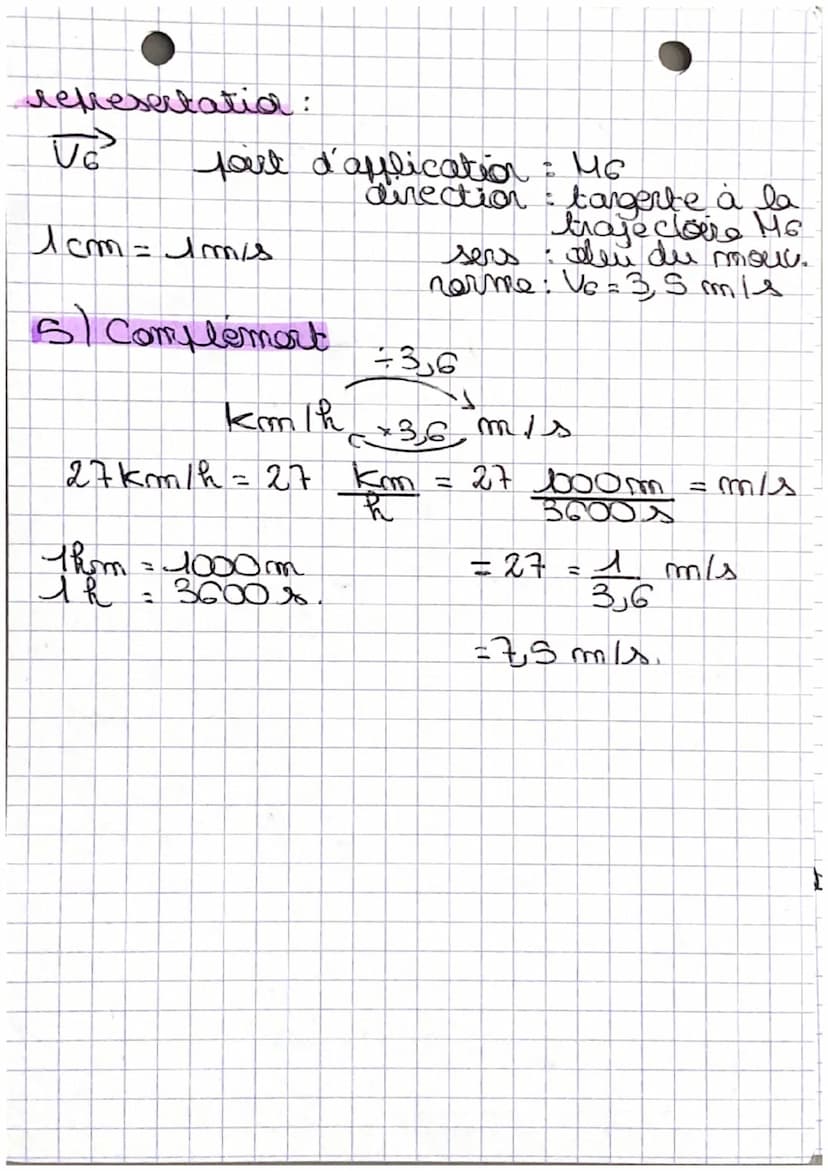 representation :
V6 point d'application : M6
direction : tangente à la
trajectoire M6
1 cm = 1 m/s
sens : celui du mouv.
norme : V6 = 3,5 m/s
5) Complément
÷3,6
km/h ×3,6 m/s
27 km/h = 27 km/h = 27 1000m/3600s = m/s
1km = 1000m
1h = 3600s.
= 27 = 1/3,6 m/s
= 7,5 m/s.